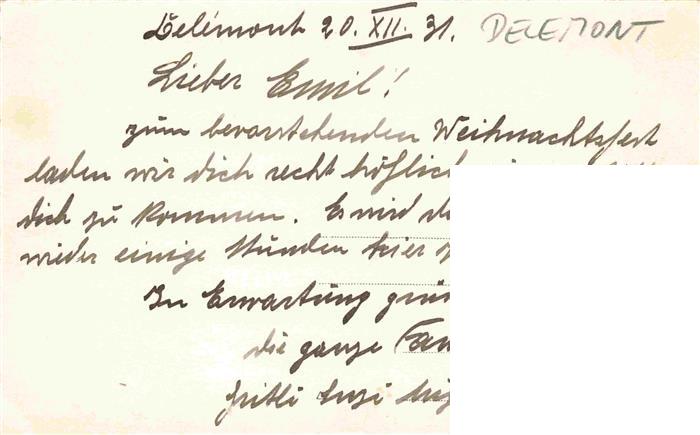 Delémont 20. XII. 31. DELEMONT
Lieber Emil!
zum bevorstehenden Weihnachtsfest
laden wir dich recht höflich
dich zu kommen. Es wird
wieder einige Stunden hier
In Erwartung
die ganze